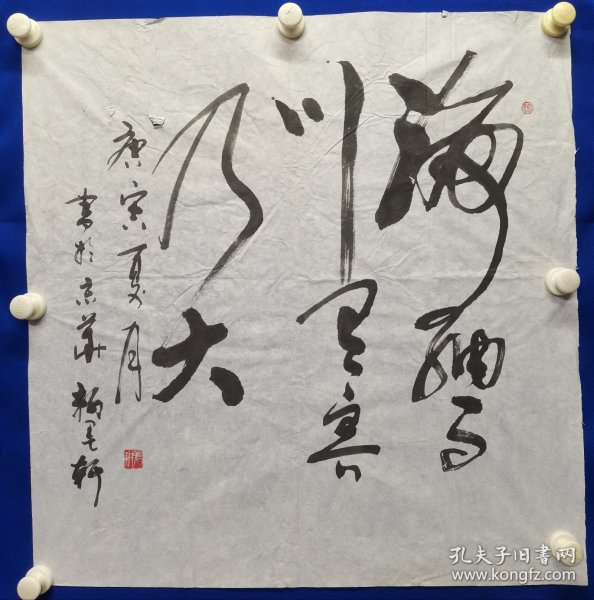 海納百
川有容
乃大
庚寅夏月
書於京華墨軒
孔夫子旧书网
www.kongfz.com